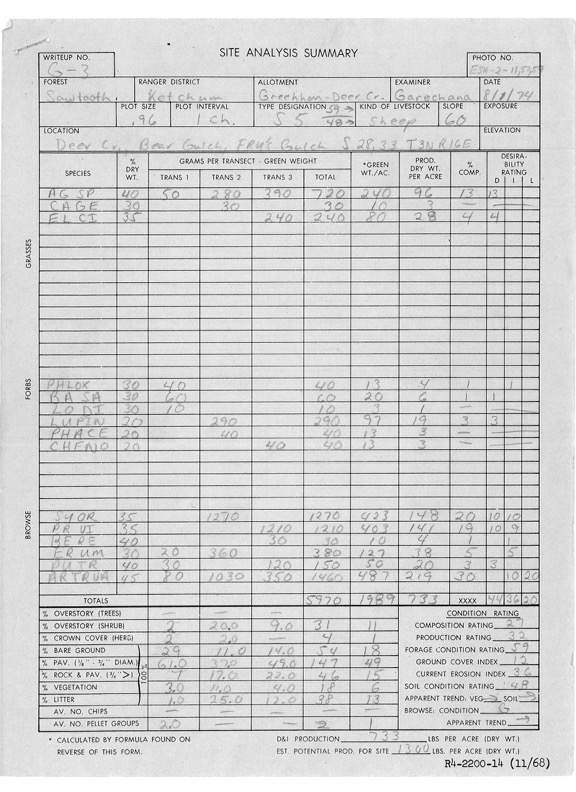 SITE ANALYSIS SUMMARY
WRITEUP NO. G-3
PHOTO NO.
FOREST RANGER DISTRICT ALLOTMENT EXAMINER DATE
Sawtooth Ketchum Greenhorn-Deer Cr. Garechana 8/1/74
PLOT SIZE PLOT INTERVAL TYPE DESIGNATION KIND OF LIVESTOCK SLOPE EXPOSURE
.96 1 ch. S 5 Sheep 60
LOCATION ELEVATION
Deer Cr, Bear Gulch, Gulch S 28,33 T3N R16E
SPECIES % DRY WT. GRAMS PER TRANSECT - GREEN WEIGHT *GREEN WT./AC. PROD. DRY WT. PER ACRE % COMP. DESIRABILITY RATING
TRANS 1 TRANS 2 TRANS 3 TOTAL D I L
GRASSES
AGSP 40 50 280 390 720 240 96 13 13
CAGE 30 30 30 10 3 —
ELCI 35 240 240 80 28 4 4
FORBS
PHLOX 30 40 40 13 4 1 1
BASA 30 60 60 20 6 1 1
LODI 30 10 10 3 1 —
LUPIN 20 290 290 97 19 3 3
PHACE 20 40 40 13 3 —
CHENO 20 40 40 13 3 —
BROWSE
SYOR 35 1270 1270 423 148 20 10 10
PRVI 35 1210 1210 403 141 19 10 9
BERE 40 30 30 10 4 1 1
ERUM 30 20 360 380 127 38 5 5
PUTR 40 30 120 150 50 20 3 3
ARTRVA 45 80 1030 350 1460 487 219 30 10 20
TOTALS 5970 1989 733 XXXX 44 36 20
% OVERSTORY (TREES) — — —
% OVERSTORY (SHRUB) 2 20.0 9.0 31 11
% CROWN COVER (HERB) 2 2.0 — 4 1
% BARE GROUND 29 11.0 14.0 54 18
% PAV. (⅛" - ¾" DIAM.) 61.0 37.0 49.0 147 49
% ROCK & PAV. (¾">) 7 17.0 22.0 46 15
% VEGETATION 3.0 11.0 4.0 18 6
% LITTER 1.0 25.0 12.0 38 13
100%
AV. NO. CHIPS — — — — —
AV. NO. PELLET GROUPS 2.0 — — 2 1
CONDITION RATING
COMPOSITION RATING 27
PRODUCTION RATING 32
FORAGE CONDITION RATING 59
GROUND COVER INDEX 12
CURRENT EROSION INDEX 36
SOIL CONDITION RATING 48
APPARENT TREND: VEG → SOIL →
BROWSE: CONDITION
APPARENT TREND →
* CALCULATED BY FORMULA FOUND ON
REVERSE OF THIS FORM.
D&I PRODUCTION 733 LBS PER ACRE (DRY WT.)
EST. POTENTIAL PROD. FOR SITE 1300 LBS. PER ACRE (DRY WT.)
R4-2200-14 (11/68)